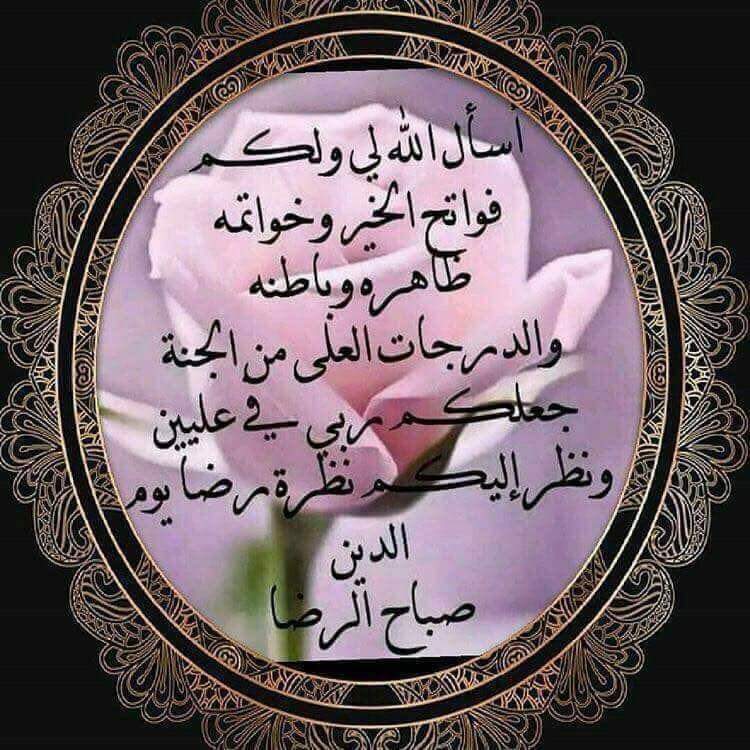 أسأل الله لي ولكم
فواتح الخير وخواتمه
ظاهره وباطنه
والدرجات العلى من الجنة
جعلكم ربي في عليين
ونظر إليكم نظرة رضا يوم
الدين
صباح الرضا